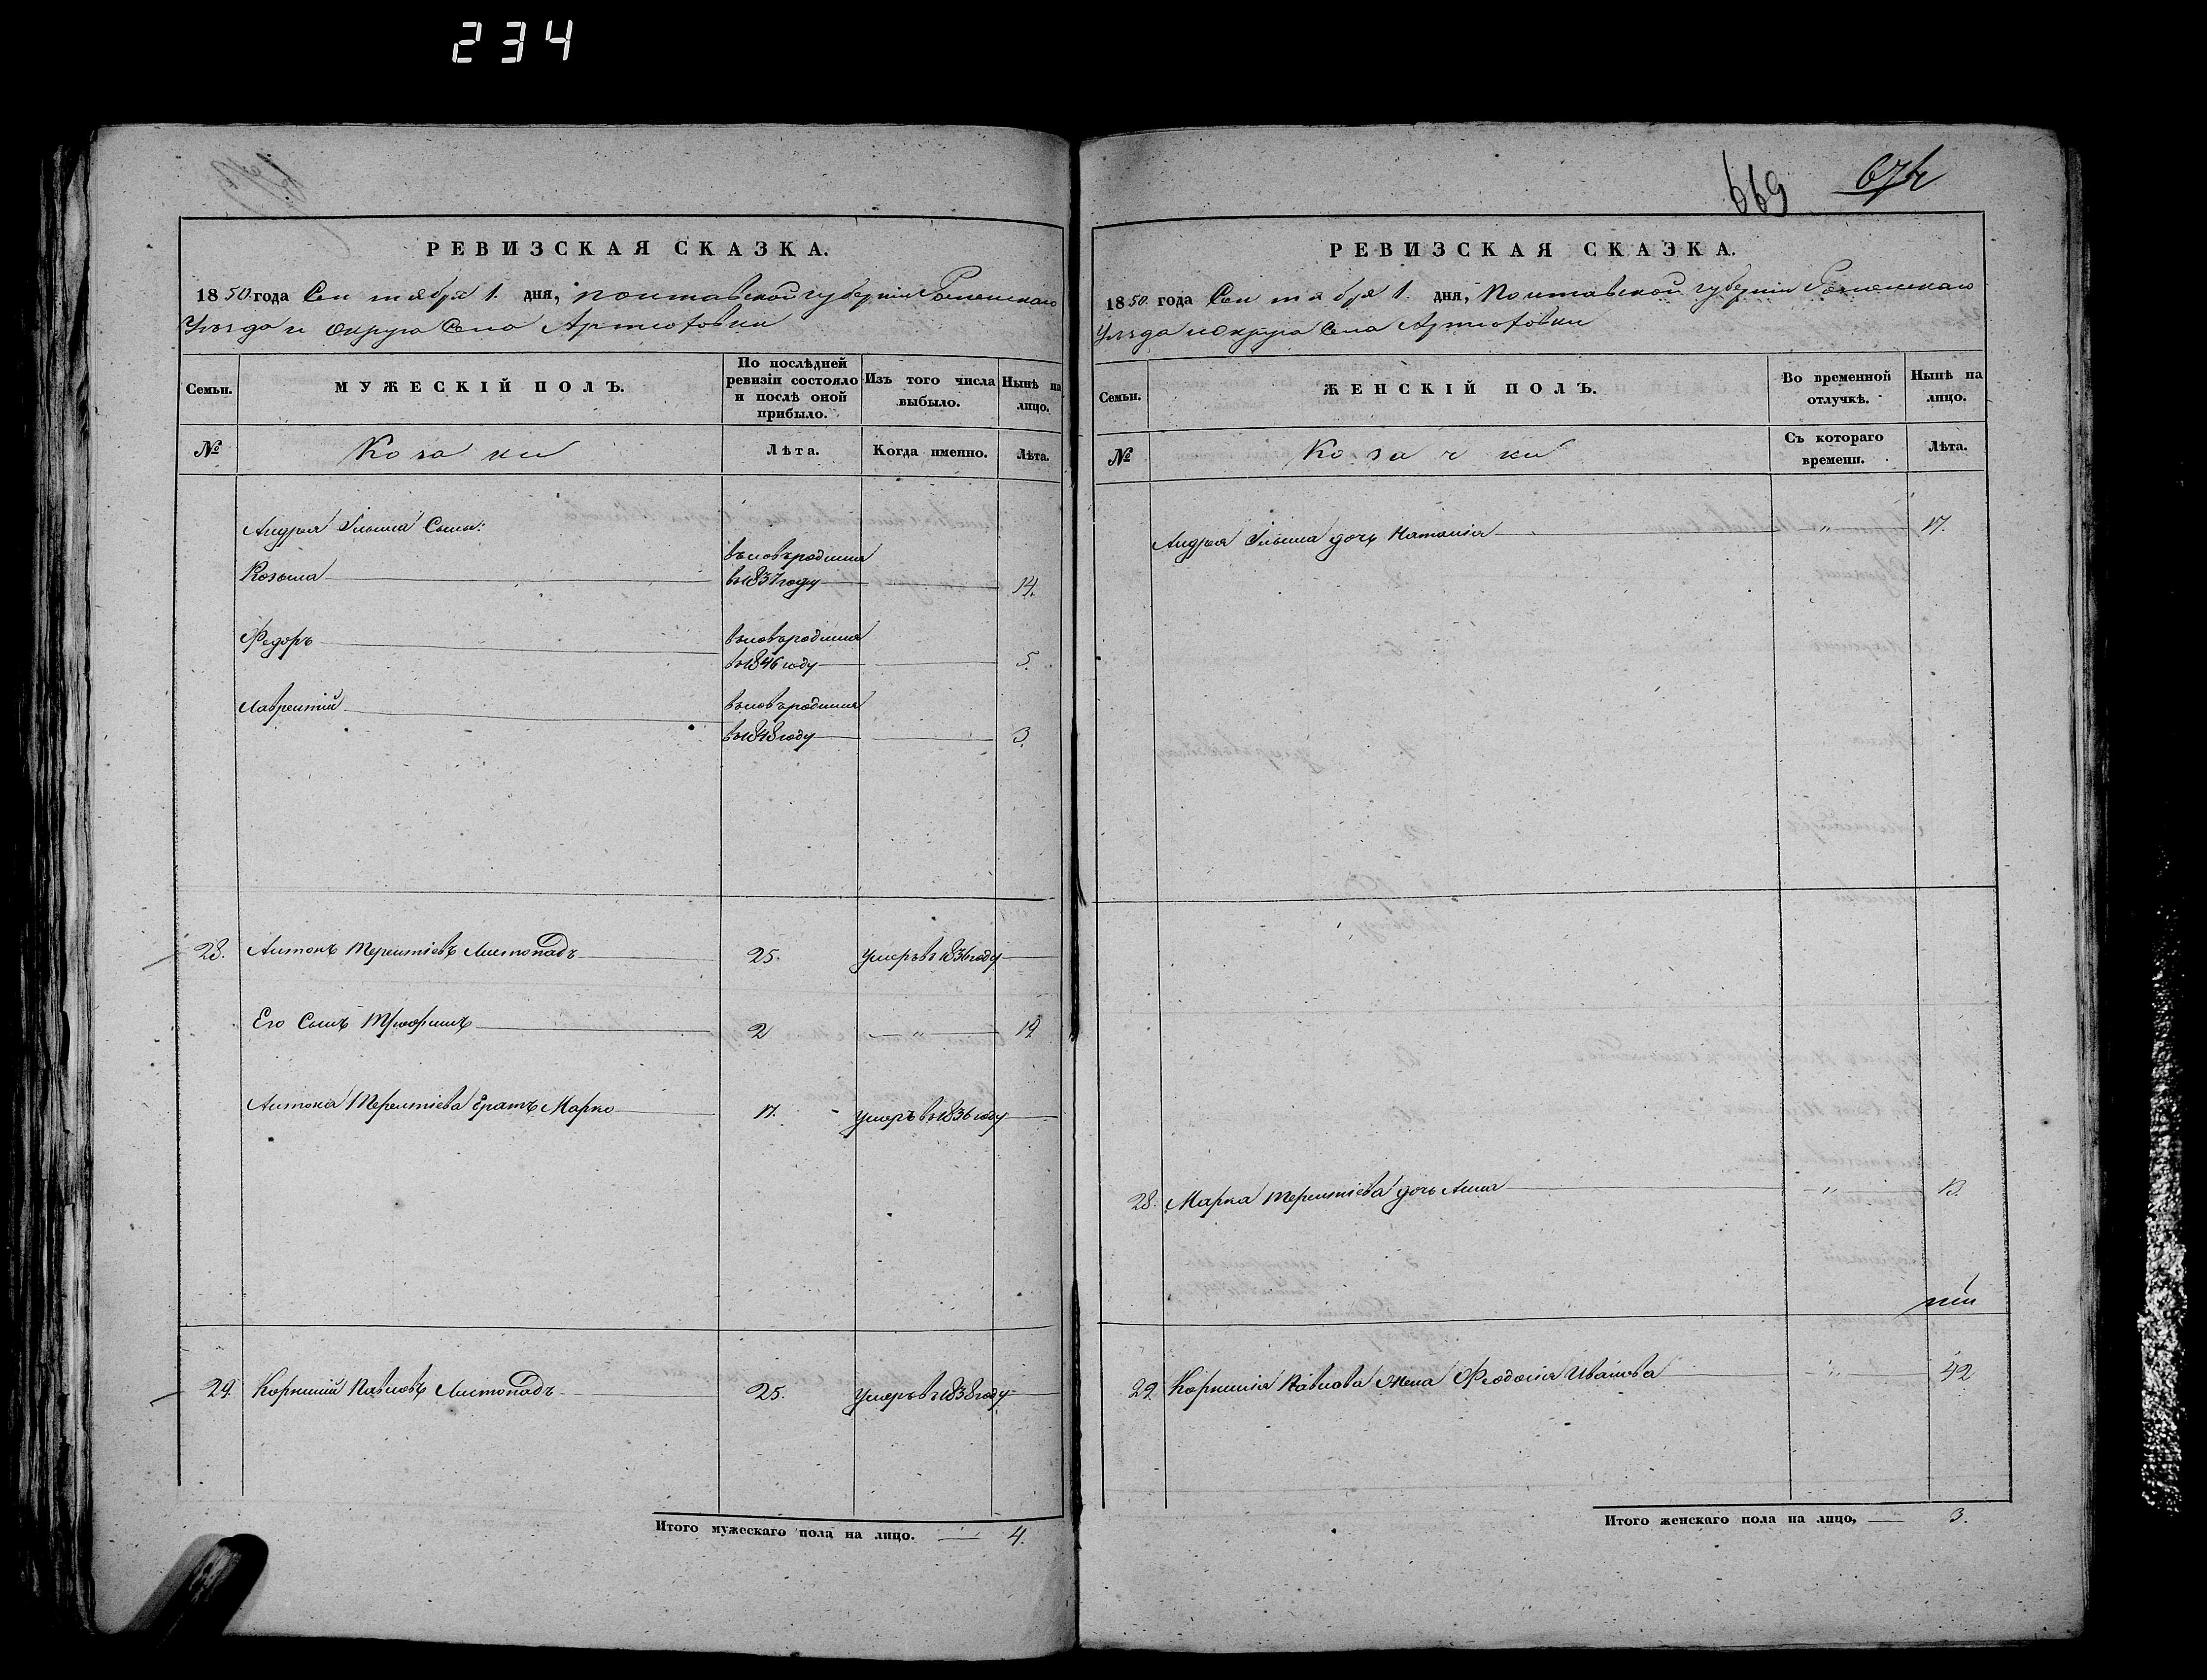 234
669 671
РЕВИЗСКАЯ СКАЗКА.
1850 года Сентября 1. дня, Полтавской губернии Роменскаго
Уезда и округа Села Артюховки
Семьи. МУЖЕСКІЙ ПОЛЪ. По послѣдней ревизіи состояло и послѣ оной прибыло. Изъ того числа выбыло. Нынѣ на лицо.
№ Козаки Лѣта. Когда именно. Лѣта.
Андрея Ильина Сыны:
вновь родился
Козьма в 1837 году 14.
Федоръ вновь родился
в 1846 году 5.
Лаврентий вновь родился
в 1848 году 3.
28. Антонъ Терентіевъ Листопадъ 25. умеръ в 1836 году
Его Сынъ Трофимъ 2 " 19
Антона Терентіева братъ Марко 17. умеръ в 1836 году
29. Корнилий Павловъ Листопадъ 25. умеръ в 1838 году
Итого мужескаго пола на лицо. 4.
РЕВИЗСКАЯ СКАЗКА.
1850 года Сентября 1. дня, Полтавской губернии Роменскаго
Уезда и Округа Села Артюховки
Семьи. ЖЕНСКІЙ ПОЛЪ. Во временной отлучкѣ. Нынѣ на лицо.
№ Козачки Съ котораго времени. Лѣта.
Андрея Ильина дочь Наталія " 17.
28. Марка Терентіева дочь Анна " 13.
29. Корнилія Павлова жена Феодосія Иванова " 42
Итого женскаго пола на лицо, 3.